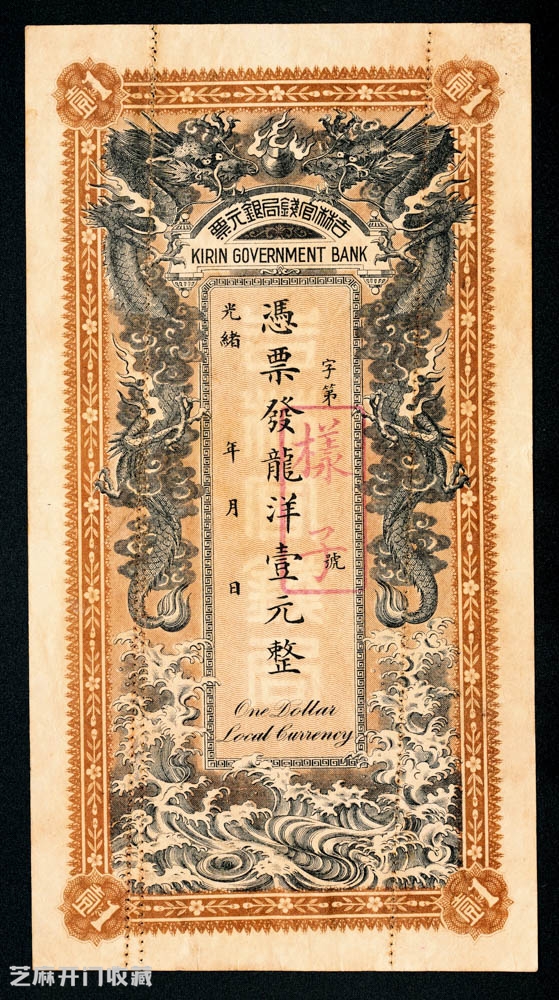 壹1
壹1
吉林官錢局銀元票
KIRIN GOVERNMENT BANK
字第 號
憑票發龍洋壹元整
光緒 年 月 日
樣子
吉林官錢局
One Dollar
Local Currency
壹1
壹1
芝麻开门收藏